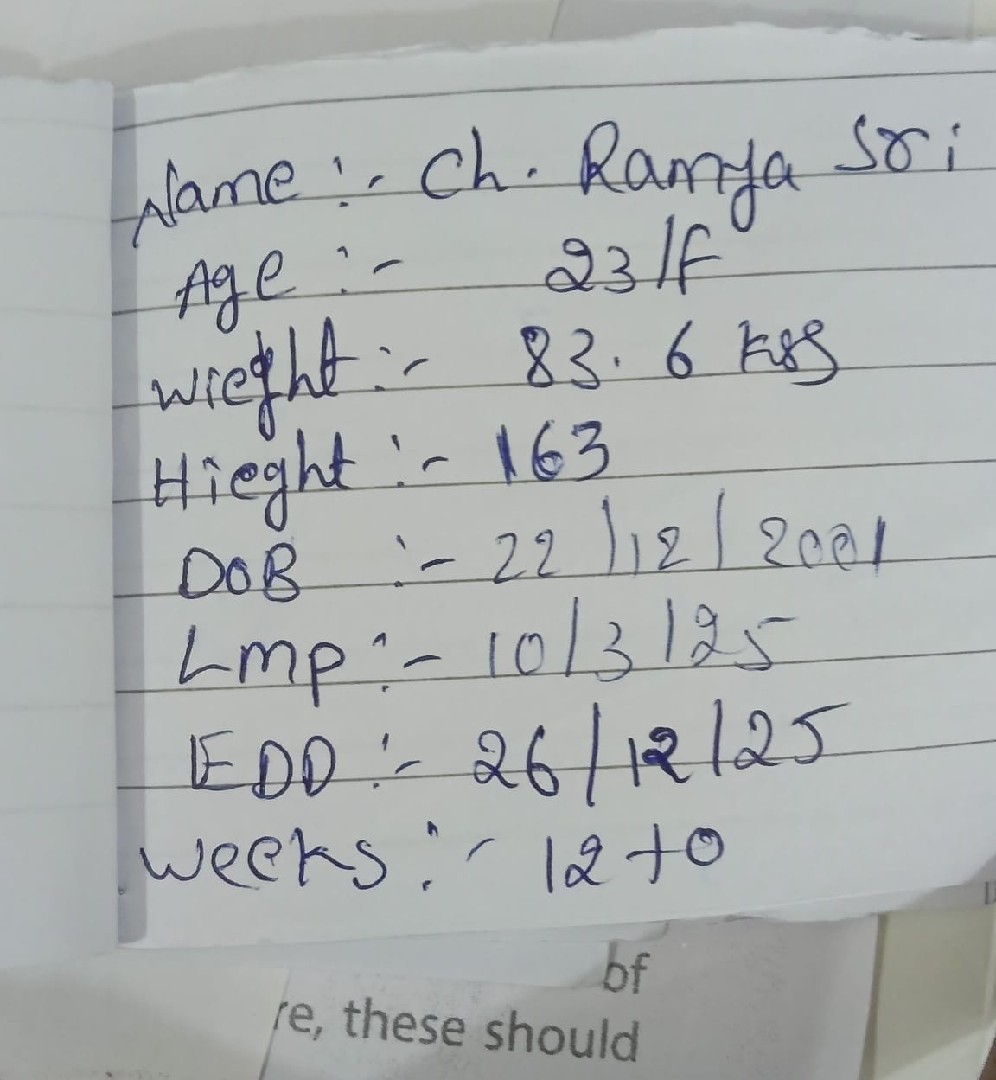 Name :- Ch. Ramya Sri
Age :- 23/F
wieght :- 83.6 kgs
Hieght :- 163
DOB :- 22/12/2001
Lmp :- 10/3/25
EDD :- 26/12/25
weeks :- 12+0
bf
re, these should